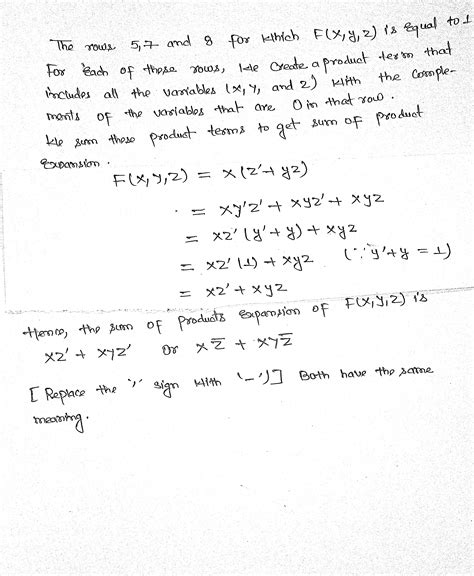 The rows 5,7 and 8 for which F(x,y,z) is equal to 1
For each of these rows, we create a product term that
includes all the variables (x, y, and z) with the comple-
ments of the variables that are 0 in that row.
We sum these product terms to get sum of product
Expansion.
F(x,y,z) = x(z'+ yz)
= xy'z' + xyz' + xyz
= xz' (y'+y) + xyz
= xz' (1) + xyz (∵ y'+y = 1)
= xz' + xyz
Hence, the sum of products expansion of F(x,y,z) is
xz' + xyz' or xz̅ + xyz̅
[Replace the ''' sign with '-')] Both have the same
meaning.